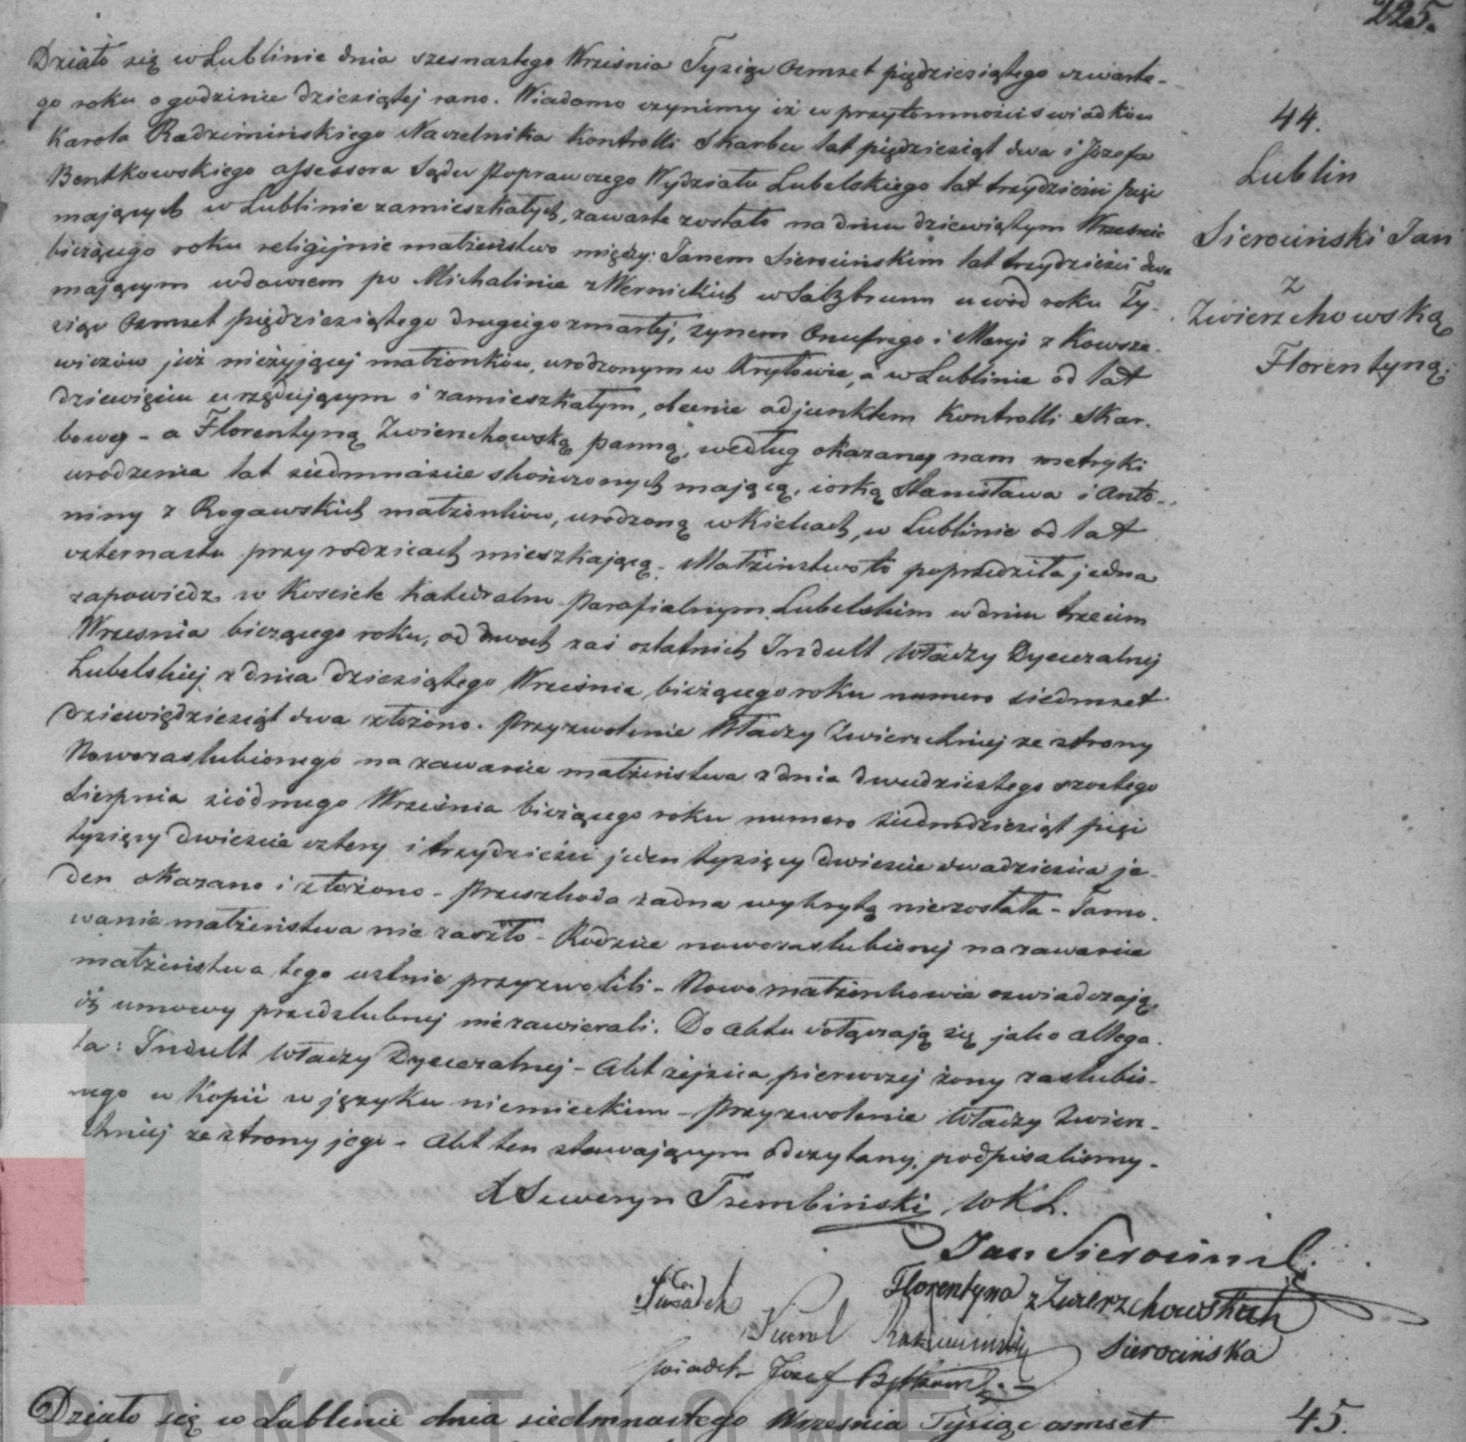 225.
Działo się w Lublinie dnia szesnastego Września Tysiąc ośmset pięćdziesiątego czwarte-
go roku o godzinie dziesiątej rano. Wiadomo czynimy iż w przytomności swiadków
Karola Radzimińskiego Naczelnika Kontrolli Skarbu lat pięćdziesiąt dwa i Józefa
Bentkowskiego assessora Sądu Poprawczego Wydziału Lubelskiego lat trzydzieści pięć
mających w Lublinie zamieszkałych, zawarte zostało na dniu dziewiątym Wrzesnia
bieżącego roku religijnie małżeństwo między: Janem Sierocińskim lat trzydzieści dwa
mającym wdowcem po Michalinie z Wernickich w Salzbrunn w roku Ty-
siąc ośmset pięćdziesiątego drugiego zmarłej, synem Onufrego i Maryi z Kowsze-
wiczów już nieżyjącej małżonków, urodzonym w Kryłowie, a w Lublinie od lat
dziewięciu urzędującym i zamieszkałym, obecnie adjunktem Kontrolli Skar-
bowey - a Florentyną Zwierzchowską panną, według okazaney nam metryki
urodzenia lat siedmnaście skończonych mającą, córką Stanisława i Anto-
niny z Rogawskich małżonków, urodzoną w Kielcach, w Lublinie od lat
czternastu przy rodzicach mieszkającą. Małżeństwo to poprzedziła jedna
zapowiedz w Kosciele Katedralno Parafialnym Lubelskim w dniu trzecim
Wrzesnia bieżącego roku, od dwóch zaś ostatnich Indult Władzy Dyecezalnej
Lubelskiej z dnia dziesiątego Września bieżącego roku numero siedmset
dziewięćdziesiąt dwa złożono. Przyzwolenie Władzy Zwierzchniej ze strony
Nowozaslubionego na zawarcie małżeństwa z dnia dwudziestego szóstego
Sierpnia siódmego Września bieżącego roku numero siedmdziesiąt pięć
tysięcy dwieście cztery i trzydzieści jeden tysięcy dwieście dwadzieścia je-
den okazano i złożono - Przeszkoda żadna wykrytą niezostała - Tamo-
wanie małżeństwa nie zaszło - Rodzice nowozaslubionej na zawarcie
małżeństwa tego ustnie przyzwolili - Nowo małżonkowie oswiadczają,
iż umowy przedslubnej niezawierali. Do Aktu dołączają się jako allega-
ta: Indult Władzy Dyecezalnej - Akt zejścia pierwszej żony zaslubio-
nego w Kopii w języku niemieckim - Przyzwolenie Władzy Zwierz-
chniej ze strony jego - Akt ten stawającym odczytany, podpisalismy -
X Seweryn Trembiński WKL.
Jan Sierociński
Florentyna z Zwierzchowskich
Sierocińska
Świadek
Karol Radzimiński
świadek Józef
44.
Lublin
Sierociński Jan
z
Zwierzchowską
Florentyną.
Działo się w Lublinie dnia siedmnastego Września Tysiąc ośmset
45.
PAŃSTWOWE